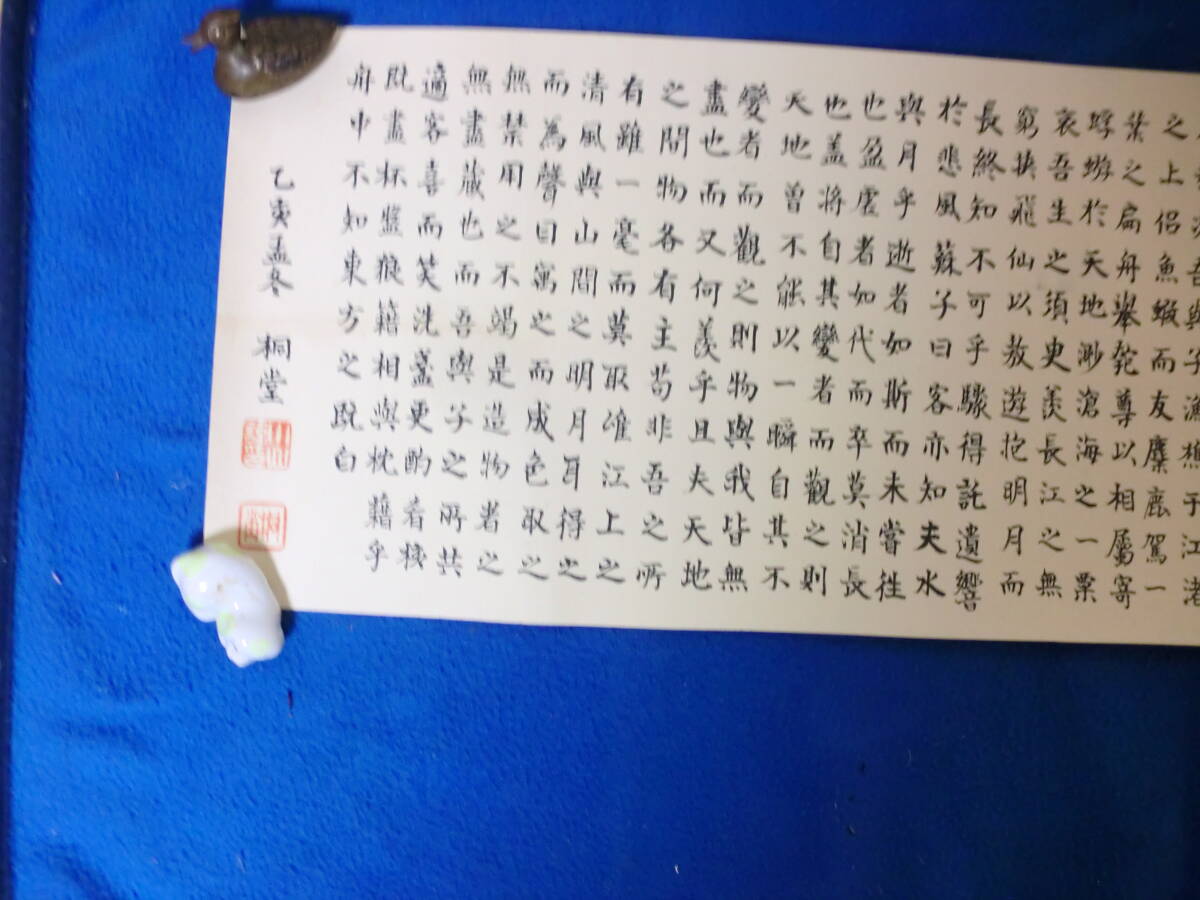 吾與子漁樵于江渚
之上侶魚蝦而友麋鹿駕一
葉之扁舟舉匏尊以相屬寄
蜉蝣於天地渺滄海之一粟
哀吾生之須臾羨長江之無
窮挟飛仙以敖遊抱明月而
長終知不可乎驟得託遺響
於悲風蘇子曰客亦知夫水
與月乎逝者如斯而未嘗往
也盈虛者如代而卒莫消長
也盖將自其變者而觀之則
天地曾不能以一瞬自其不
變者而觀之則物與我皆無
盡也而又何羨乎且夫天地
之間物各有主苟非吾之所
有雖一毫而莫取惟江上之
清風與山間之明月耳得之
而為聲目寓之而成色取之
無禁用之不竭是造物者之
無盡藏也而吾與子之所共
適客喜而笑洗盞更酌肴核
既盡杯盤狼籍相與枕藉乎
舟中不知東方之既白
乙亥孟冬 桐堂